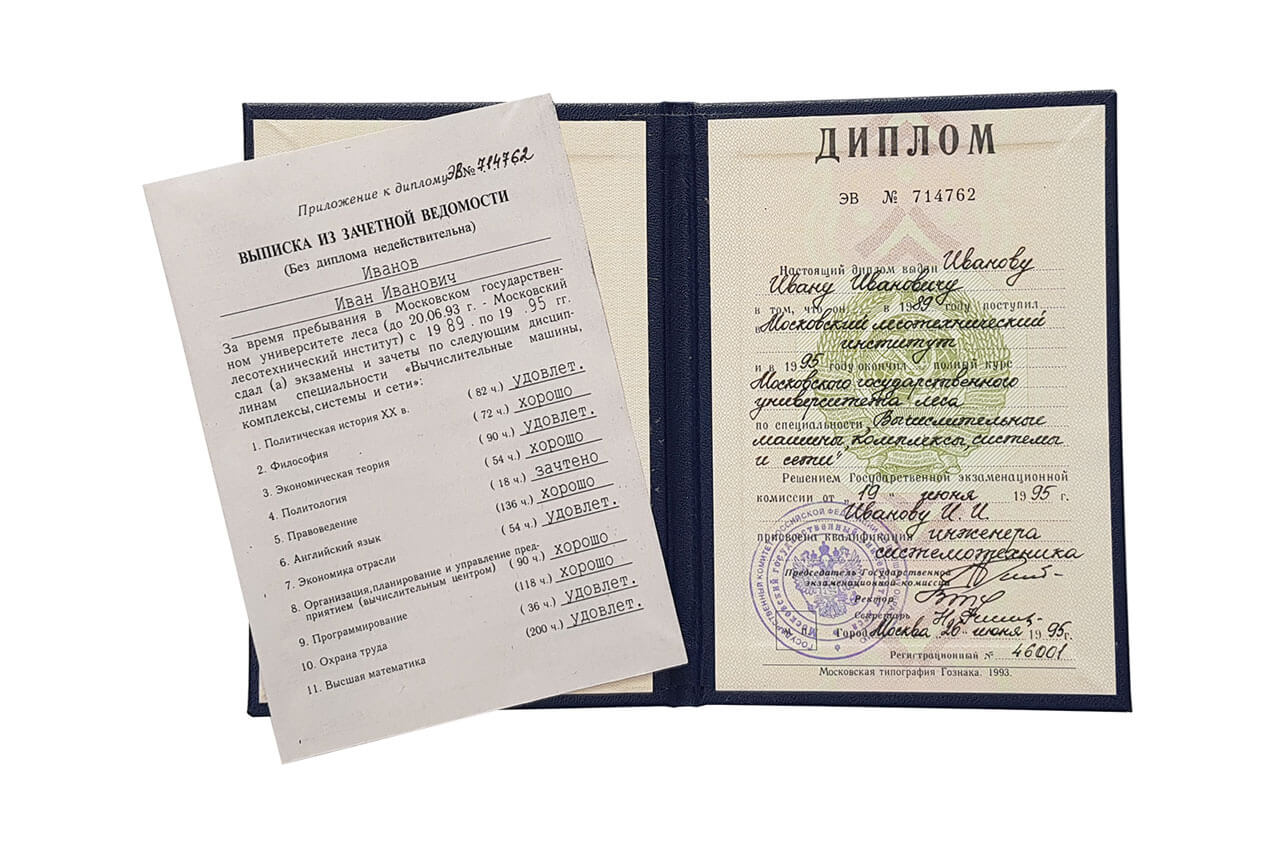 Приложение к диплому ЭВ № 714762
ВЫПИСКА ИЗ ЗАЧЕТНОЙ ВЕДОМОСТИ
(Без диплома недействительна)
Иванов
Иван Иванович
За время пребывания в Московском государствен-
ном университете леса (до 20.06.93 г. - Московский
лесотехнический институт) с 1989. по 19.95 гг.
сдал (а) экзамены и зачеты по следующим дисцип-
линам специальности «Вычислительные машины,
комплексы, системы и сети»:
1. Политическая история XX в. (82 ч.) удовлет.
2. Философия (72 ч.) хорошо
3. Экономическая теория (90 ч.) удовлет.
4. Политология (54 ч.) хорошо
5. Правоведение (18 ч.) зачтено
6. Английский язык (136 ч.) хорошо
7. Экономика отрасли (54 ч.) удовлет.
8. Организация, планирование и управление пред-
приятием (вычислительным центром) (90 ч.) хорошо
9. Программирование (118 ч.) хорошо
10. Охрана труда (36 ч.) удовлет.
11. Высшая математика (200 ч.) удовлет.
ДИПЛОМ
ЭВ № 714762
Настоящий диплом выдан Иванову
Ивану Ивановичу
в том, что он в 1989 году поступил
в Московский лесотехнический
институт
и в 1995 году окончил полный курс
Московского государственного
университета леса
по специальности „Вычислительные
машины, комплексы, системы
и сети"
Решением Государственной экзаменационной
комиссии от "19" июня 1995 г.
Иванову И. И.
присвоена квалификация инженера
системотехника
Председатель Государственной
экзаменационной комиссии
Ректор
Секретарь
Город Москва 26 июня 1995г.
Регистрационный № 46001
Московская типография Гознака. 1993.